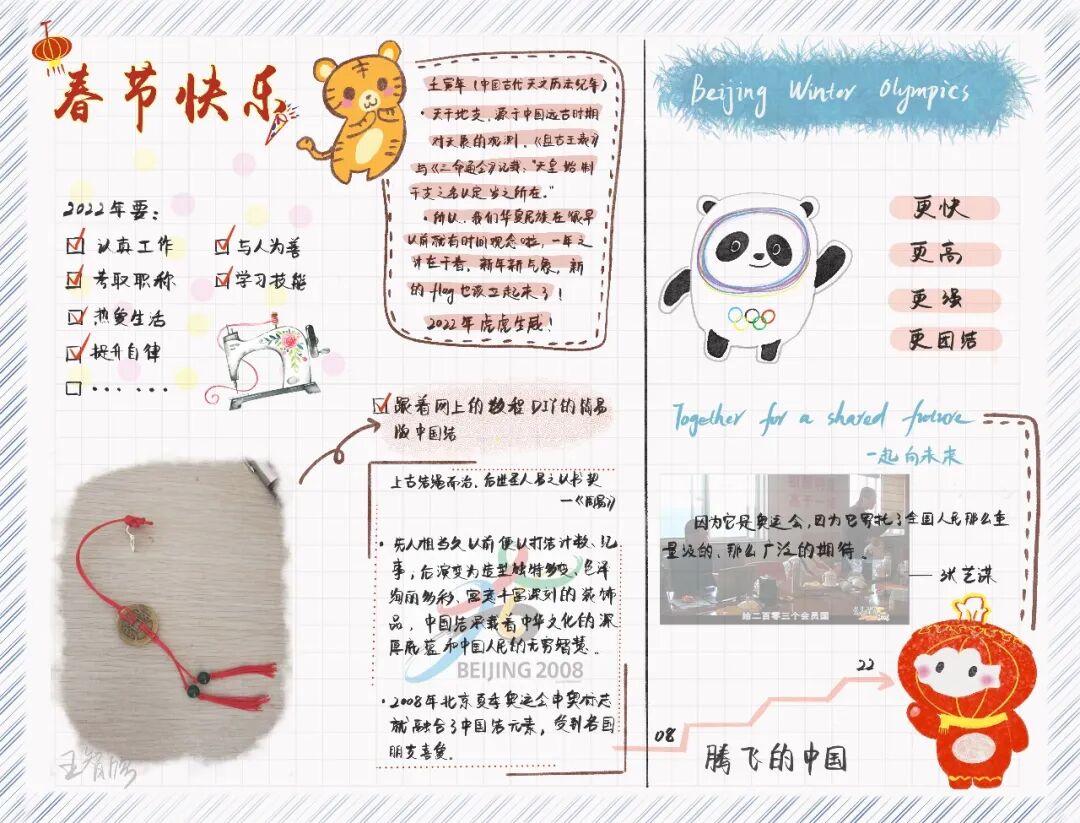 春节快乐
2022年要:
认真工作
与人为善
考取职称
学习技能
热爱生活
提升自律
......
壬寅年(中国古代天文历法纪年)
·天干地支,源于中国远古时期
对天象的观测。《盘古王表》
与《三命通会》记载:"天皇始制
干支之名以定岁之所在。"
·所以,我们华夏民族在很早
以前就有时间观念啦,一年之
计在于春,新年新气象,新
的flag也该立起来了!
2022年虎虎生威!
跟着网上的教程DIY的简易
版中国结
上古结绳而治,后世圣人易之以书契
—《周易》
·先人祖当久以前便以打结计数、记
事,后演变为造型独特多变、色泽
绚丽多彩、寓意丰富深刻的装饰
品。中国结承载着中华文化的深
厚底蕴和中国人民的无穷智慧。
BEIJING 2008
·2008年北京夏季奥运会申奥标志
就融合了中国结元素,受到各国
朋友喜爱。
Beijing Winter Olympics
更快
更高
更强
更团结
Together for a shared future
一起向未来
因为它是奥运会,因为它寄托了全国人民那么重
量级的、那么广泛的期待。
——张艺谋
给二百零三个会员国
22
08
腾飞的中国